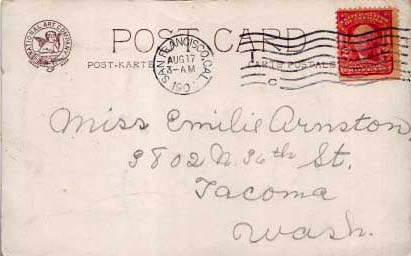 NATIONAL ART COMPANY
POST CARD
POST-KARTE
CARTE POSTALE
SAN FRANCISCO, CAL.
AUG 17
3-AM
190
C
Miss Emilie Arnston
3802 N. 36th St.
Tacoma
Wash.